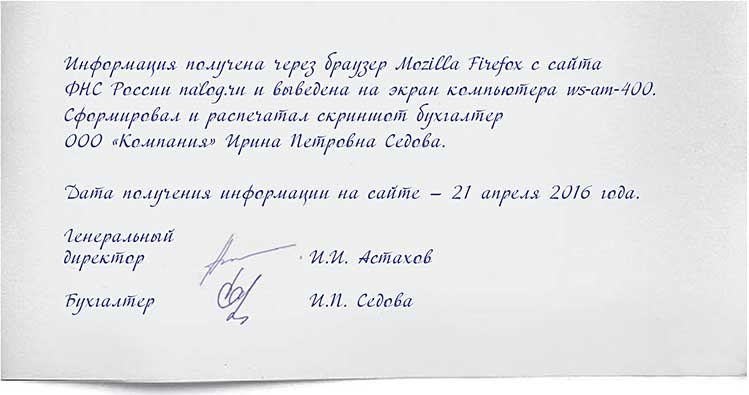 Информация получена через браузер Mozilla Firefox с сайта
ФНС России nalog.ru и выведена на экран компьютера ws-am-400.
Сформировал и распечатал скриншот бухгалтер
ООО «Компания» Ирина Петровна Седова.
Дата получения информации на сайте – 21 апреля 2016 года.
Генеральный
директор И.И. Астахов
Бухгалтер И.П. Седова